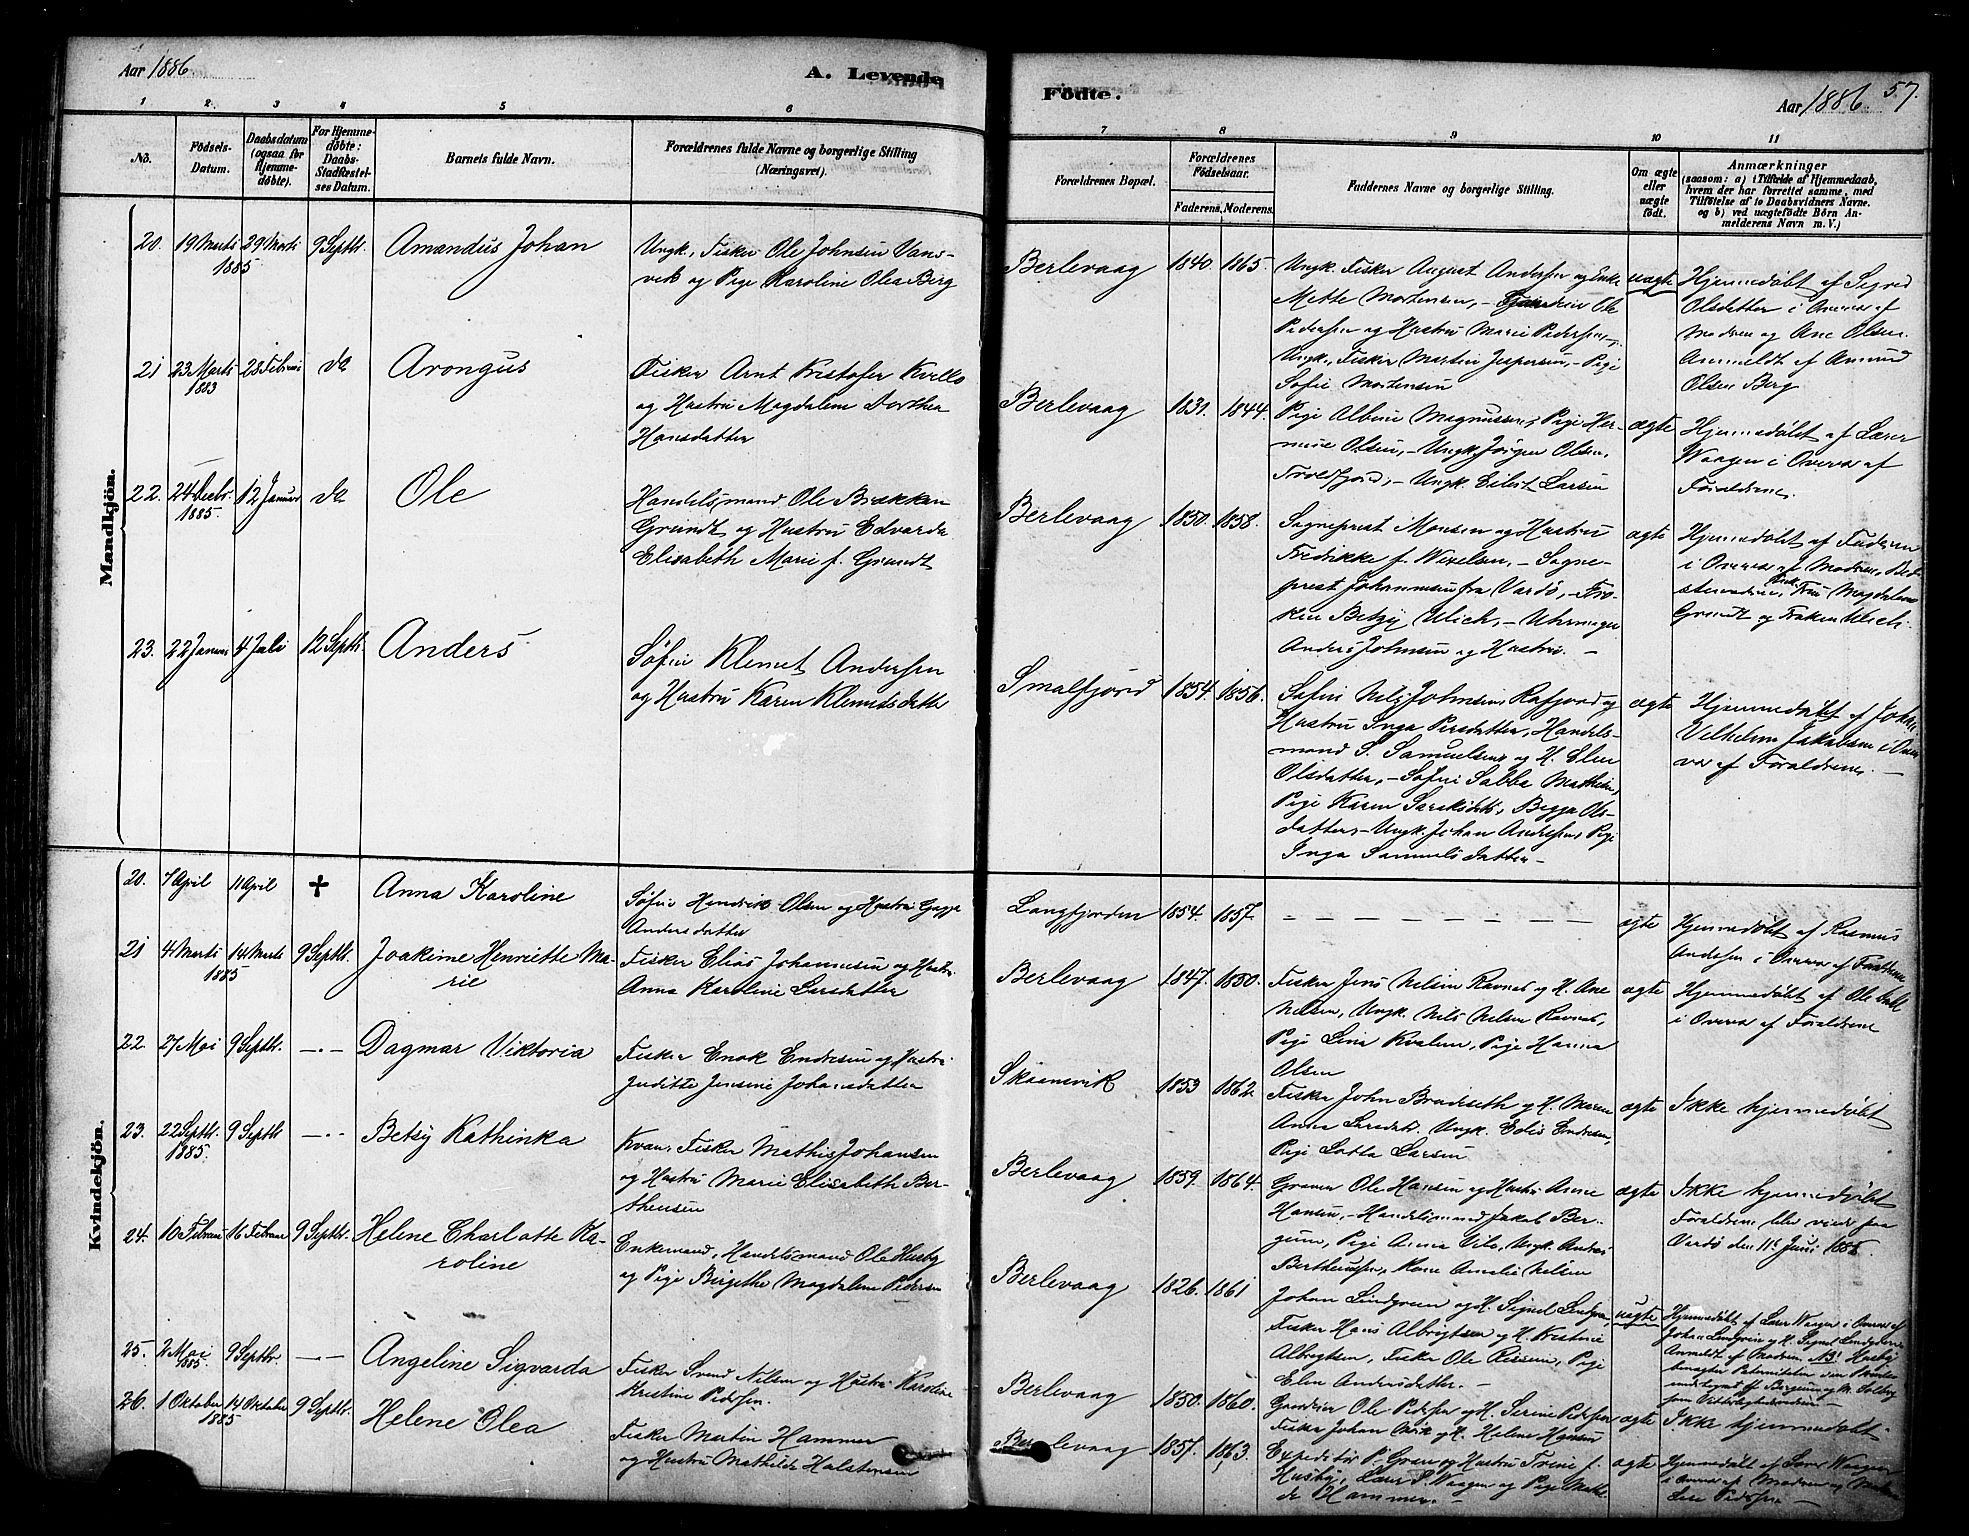 Aar 1886
A. Levende
Födte.
Aar 1886
57.
1 2. 3 4 5 6
7 8 9 10 11
No.
Födsels-
Datum.
Daabsdatum
(ogsaa for
Hjemme-
døbte).
For Hjemme-
døbte:
Daabs-
Stadfæstel-
ses Datum.
Barnets fulde Navn.
Forældrenes fulde Navne og borgerlige Stilling
(Næringsvei).
Forældrenes Bopæl.
Forældrenes
Födselsaar.
Faderens. Moderens.
Faddernes Navne og borgerlige Stilling.
Om ægte
eller
uægte
födt.
Anmærkninger
(saasom: a) i Tilfælde af Hjemmedaab,
hvem der har forrettet samme, med
Tilføielse af to Daabsvidners Navne.
og b) ved uægtefödte Börn An-
melderens Navn m. V.)
Mandkjön.
20. 19 Marts 29 Marts 9 Septbr. Amandus Johan
1885
Ungk. Fisker Ole Johnsen Vans-
vik og Pige Karoline Olea Berg
Berlevaag 1840 1865.
Ungk. Fisker August Andersen og Enke
Mette Mortensen, Ole
Pedersen og Hustru Marie Pedersen,
Ungk. Fisker Martin Jespersen, - Pige
Sofie Mortensen
uægte
Hjemmedøbt af Sigrid
Olsdatter i Overvær af
Modren og Ane Olsen.
Anmeldt af Amund
Olsen Berg
21 23 Marts 28 Februar do Arongus
1883
Fisker Arnt Kristofer Kvello
og Hustru Magdalene Dorthea
Hansdatter
Berlevaag 1831. 1844.
Pige Albine Magnussen, Pige Her-
mine Olsen, - Ungk. Jörgen Olsen,
Troldfjord, - Ungk. Eilert Larsen
ægte
Hjemmedøbt af Lærer
Waagen i Overvær af
Forældrene.
22. 24 Decbr. 12 Januar do Ole
1885.
Handelsmand Ole Brækkan
Grundt og Hustru Edvarda
Elisabeth Marie f. Grundt
Berlevaag 1850. 1858.
Sogneprest Monsen og Hustru
Fredrikke f. Wexelsen, - Sogne-
prest Johannesen fra Vardö, - Frö-
ken Betsy Ulich, - Uhrmager
Anders Johnsen og Hustru. -
ægte
Hjemmedøbt af Faderen
i Overvær af Modren, Bed-
stemodren, Fru Magdalene
Grundt og Frøken Ulich.
23. 22 Januar 4 Juli 12 Septbr. Anders
Søfin Klemet Andersen
og Hustru Karen Klemetsdatter
Smalfjord 1854. 1856.
Søfin Nils Johnsen Rafjord og
Hustru Inga Persdatter, Handels-
mand S. Samuelsen og H. Elen
Olsdatter, - Søfin Sabba Mathisen,
Pige Karen Larsdtr, Begga Ols-
datter, - Ungk. Johan Andersen, Pige
Inga Samuelsdatter -
ægte
Hjemmedøbt af Johan
Vilhelm Jakobsen i Over-
vær af Forældrene. -
Kvindekjön.
20. 7 April 11 April + Anna Karoline
Søfin Hendrik Olsen og Hustru Gagga
Andersdatter
Langfjorden 1854. 1857. - - - - - - - - ægte
Hjemmedøbt af Rasmus
Andersen i Overvær af Forældrene
21 4 Marts 14 Marts 9 Septbr. Joakime Henriette Ma-
1885 rie
Fisker Elias Johannesen og Hustru
Anna Karoline Larsdatter
Berlevaag 1847. 1850.
Fisker Jens Nilsen Ravnas og H. Ane
Nilsen, Ungk. Nils Nilsen Ravnas,
Pige Lina Kvalem, Pige Hanna
Olsen
ægte
Hjemmedøbt af Ole
i Overvær af Forældrene
22. 27 Mai 9 Septbr. -.- Dagmar Viktoria
Fisker Enok Endresen og Hustru
Juditte Jensine Johansdatter
Skaanevik 1853 1862.
Fisker John Brudeseth og H. Maren
Anna Larsdtr. Ungk. Edis Endresen,
Pige Lotta Larsen
ægte
Ikke hjemmedøbt
23. 22 Septbr. 9 Septbr. -.- Betsy Kathinka
1885.
Kvæn, Fisker Mathis Johansen
og Hustru Marie Elisabeth Ber-
thensen
Berlevaag 1859. 1864.
Graver Ole Hansen og Hustru Anne
Hansen, - Handelsmand Jakob Ber-
gum, Pige Anna Vile, Ungk. Andreas
Berthensen, Kone Amalie Nilsen
ægte
Ikke hjemmedøbt
Forældrene blev viede paa
Vardö den 11te Juni 1885.
24. 10 Februar 16 Februar 9 Septbr. Helene Charlotte Ka-
roline
Enkemand, Handelsmand Ole Husby
og Pige Birgitte Magdalene Pedersen
Berlevaag 1826. 1861
Johan Lindgreen og H. Signel Lindgreen,
Fisker Hans Albrigtsen og H. Kristine
Albrigtsen, Fisker Ole Rissum, Pige
Elen Andersdatter. -
uægte
Hjemmedøbt af Lærer Waagen i Overvær af
Johan Lindgren og H. Signel Lindgreen
Anmeldt af Modren. NB! Husby
25. 2 Mai 9 Septbr. -- Angeline Sigvarda
1885.
Fisker Svend Nilsen og Hustru Karoline
Kristine Pedersen.
Berlevaag 1850. 1860.
Ole Pedersen og H. Serine Pedersen
Fisker Johan og H. Helene Hansen
ægte
Ikke hjemmedøbt
26. 1 Oktober 14 Oktober 9 Septbr. Helene Olea
1885
Fisker Martin Hammer
og Hustru Mathilde Halstensen
Berlevaag 1857. 1863.
Expeditör P. Gran og Hustru Trine f.
Husby, Lærer P. Waagen og Pige Mathil-
de Hammer. -
ægte
Hjemmedøbt af Lærer Waagen
i Overvær af Modren og
Pedersen -